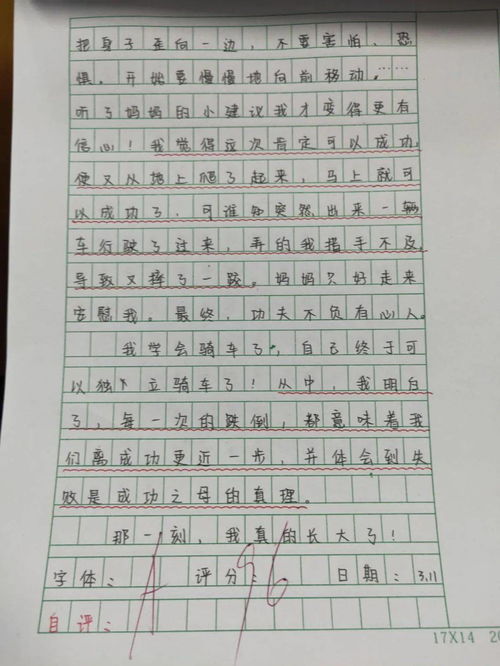 把身子歪向一边，不要害怕、恐
惧，开始要慢慢地向前移动。……
听了妈妈的小建议我才变得更有
信心！我觉得这次肯定可以成功，
便又从地上爬了起来，马上就可
以成功了，可谁知突然出来一辆
车行驶了过来，弄的我措手不及，
导致又摔了一跤。妈妈只好走来
安慰我。最终，功夫不负有心人。
我学会骑车了，自己终于可
以独立骑车了！从中，我明白
了，每一次的跌倒，都意味着我
们离成功更近一步，并体会到失
败是成功之母的真理。
那一刻，我真的长大了！
字体：A 评分：96 日期：3.11
自评：
17X14 20